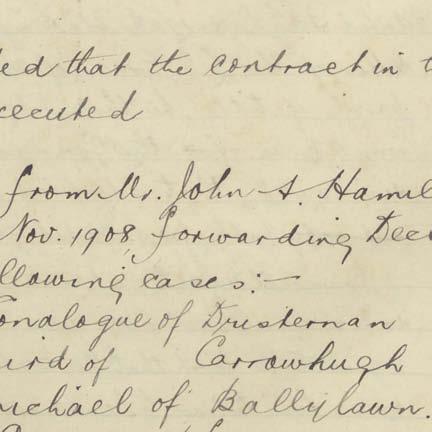 ed that the contract in t
executed
from Mr. John A. Hamil
Nov. 1908, forwarding Dec
llowing cases:-
onalogue of Dristernan
ird of Carrowhugh
michael of Ballylawn.